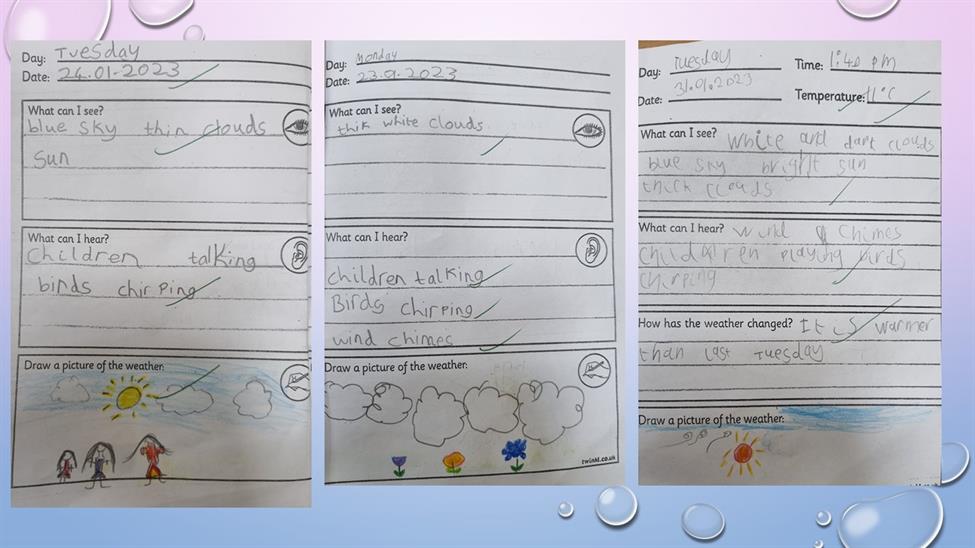 Day: Tuesday
Date: 24.01.2023
What can I see?
blue sky thin clouds
Sun
What can I hear?
Children talking
birds chirping
Draw a picture of the weather:
Day: Monday
Date: 23.01.2023
What can I see?
thik white clouds
What can I hear?
children talking
Birds chirping
wind chimes
Draw a picture of the weather:
twinkl.co.uk
Day: Tuesday Time: 1:40 pm
Date: 31.01.2023 Temperature: 11°C
What can I see? White and dark clouds
blue sky bright sun
thick clouds
What can I hear? wind chimes
children playing birds
chirping
How has the weather changed? It is warmer
than last Tuesday
Draw a picture of the weather: